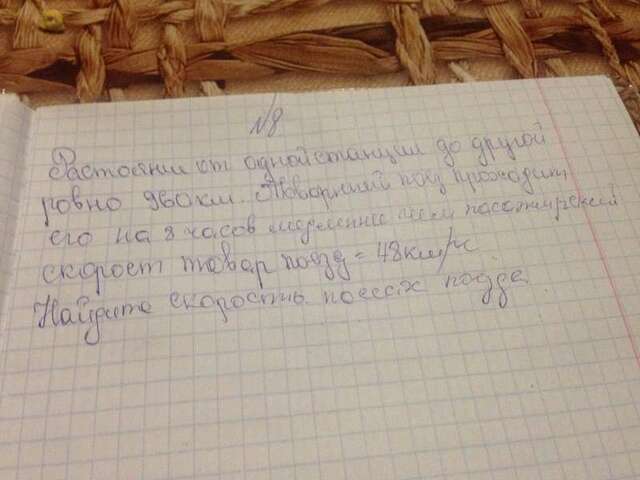 №8
Растоянии от одной станции до другой
ровно 960 км. Товарний поезд проходит
его на 8 часов медленние чем пассажирский
скорост товар поезд = 48 км/ч.
Найдите скорость пассаж поезда.